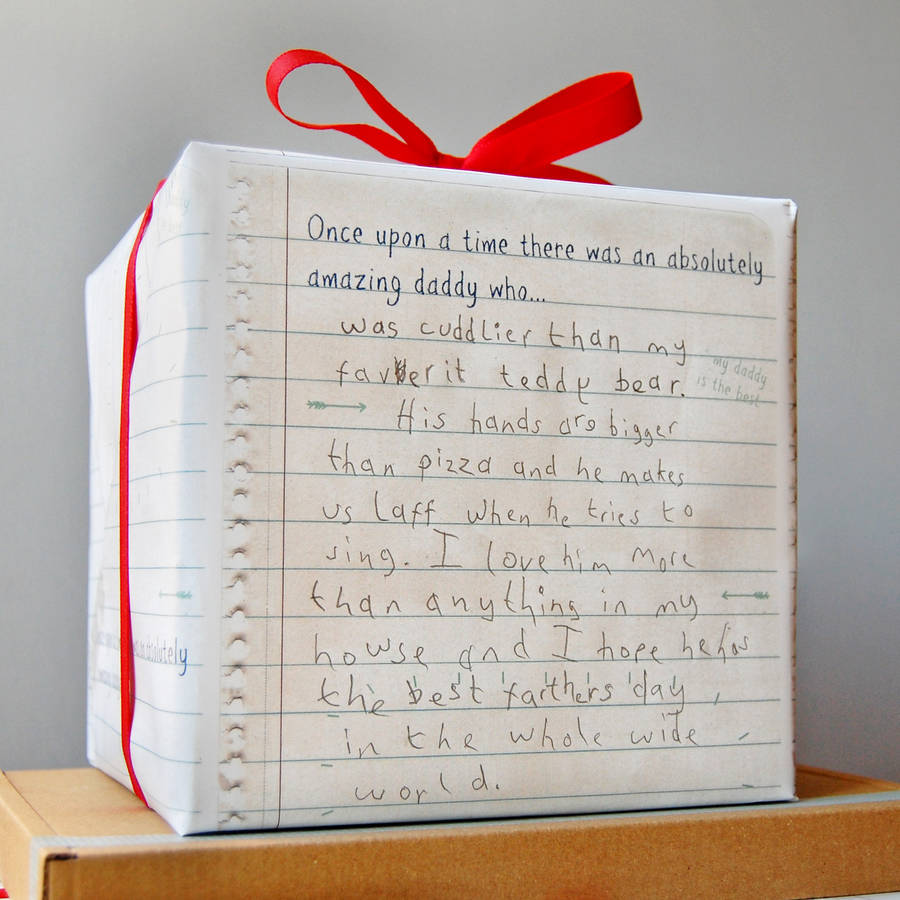 Once upon a time there was an absolutely
amazing daddy who...
was cuddlier than my
faverit teddy bear.
my daddy
is the best
His hands are bigger
than pizza and he makes
us laff when he tries to
sing. I love him more
than anything in my
howse and I hope he has
the best faithers day
in the whole wide
world.
absolutely